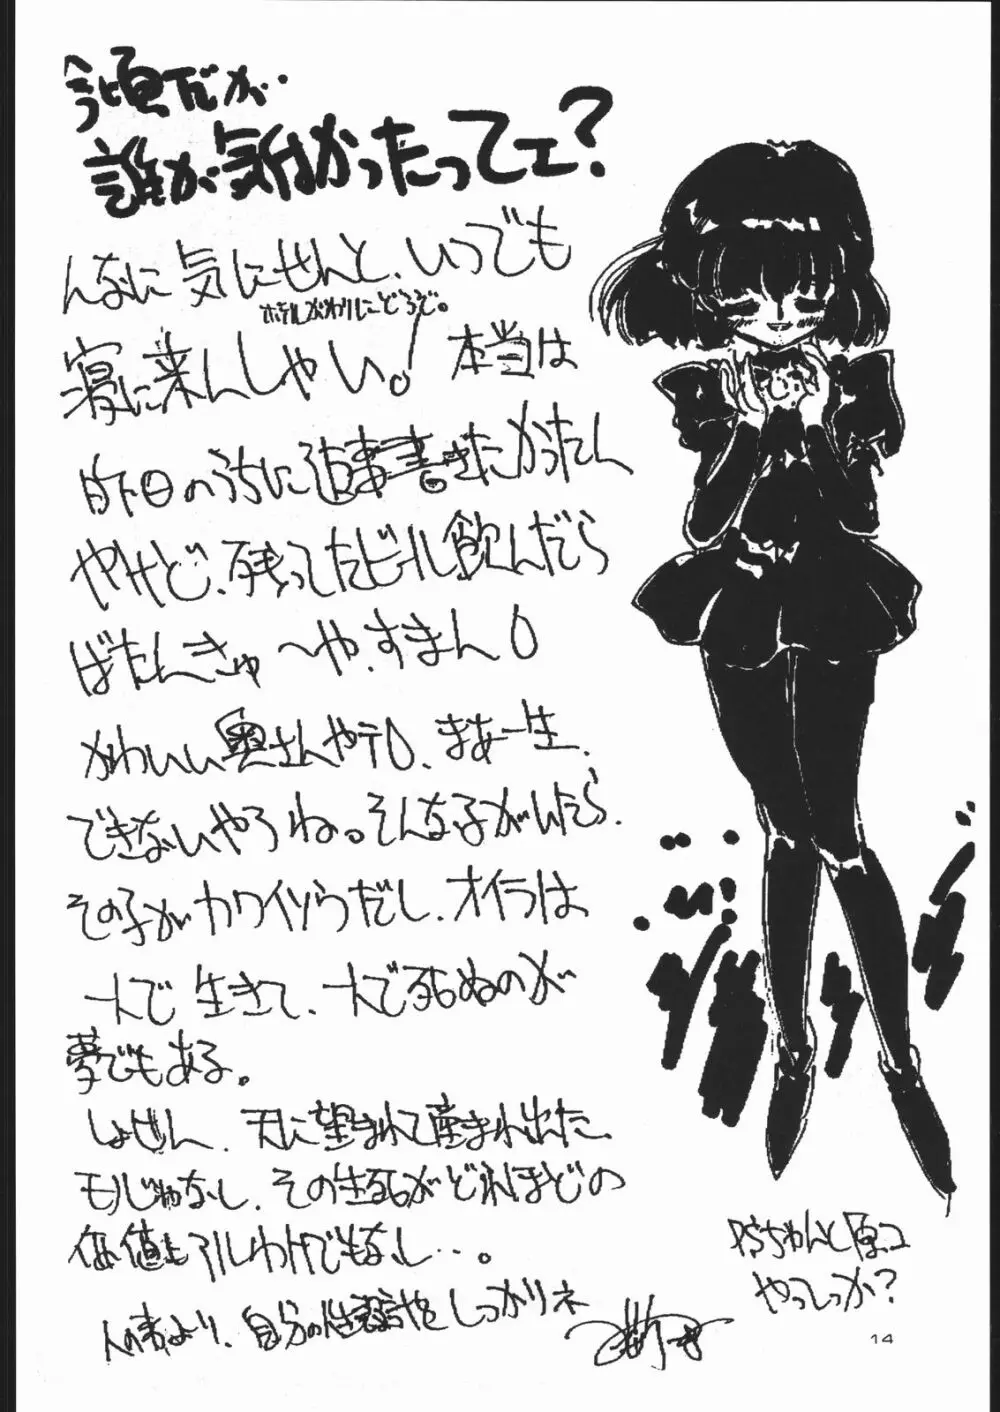 今頃だが…
誰が気付かったってェ?
んなに気にせんと、いつでも
ホテルがわりにどうぞ。
寝に来んしゃい。! 本当は
昨日のうちに返事書きたかったん
やけど、残ってたビール飲んだら
ばたんきゅ〜や、すまん
かわいい奥さんや?。まあ一生、
できないやろね。そんな子がいたら、
その子がカワイソウだし、オイラは
一人で生きて、一人で死ぬのが
夢でもある。
しょせん、天に望まれて産まれ出た
モノじゃなし、その生死がどれほどの
価値もアルわけでもなし…。
人の事より、自分の生設計をしっかりネ
PSちゃんと原コ
やってっか?
14